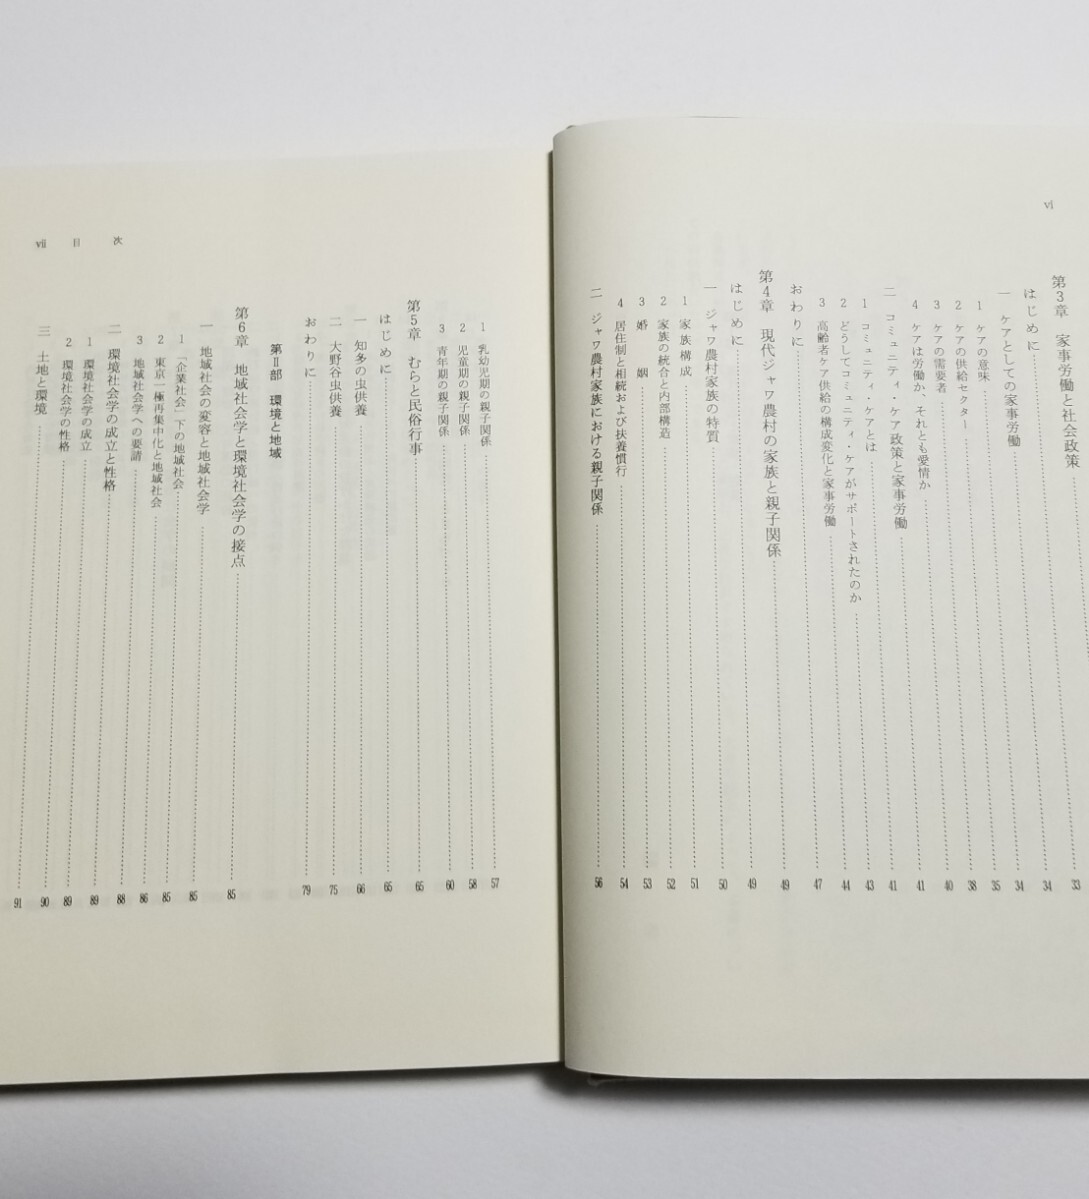 vi
第3章 家事労働と社会政策
はじめに 33
一 ケアとしての家事労働 34
1 ケアの意味 34
2 ケアの供給セクター 35
3 ケアの需要者 38
4 ケアは労働か、それとも愛情か 40
二 コミュニティ・ケア政策と家事労働 41
1 コミュニティ・ケアとは 41
2 どうしてコミュニティ・ケアがサポートされたのか 43
3 高齢者ケア供給の構成変化と家事労働 44
おわりに 47
第4章 現代ジャワ農村の家族と親子関係 49
はじめに 49
一 ジャワ農村家族の特質 50
1 家族構成 51
2 家族の統合と内部構造 52
3 婚姻 53
4 居住制と相続および扶養慣行 54
二 ジャワ農村家族における親子関係 56
1 乳幼児期の親子関係 57
2 児童期の親子関係 58
3 青年期の親子関係 60
第5章 むらと民俗行事 65
はじめに 65
一 知多の虫供養 66
二 大野谷虫供養 75
おわりに 79
第Ⅱ部 環境と地域
第6章 地域社会学と環境社会学の接点 85
一 地域社会の変容と地域社会学 85
1 「企業社会」下の地域社会 85
2 東京一極再集中化と地域社会 86
3 地域社会学への要請 88
二 環境社会学の成立と性格 89
1 環境社会学の成立 89
2 環境社会学の性格 90
三 土地と環境 91
vii 目次